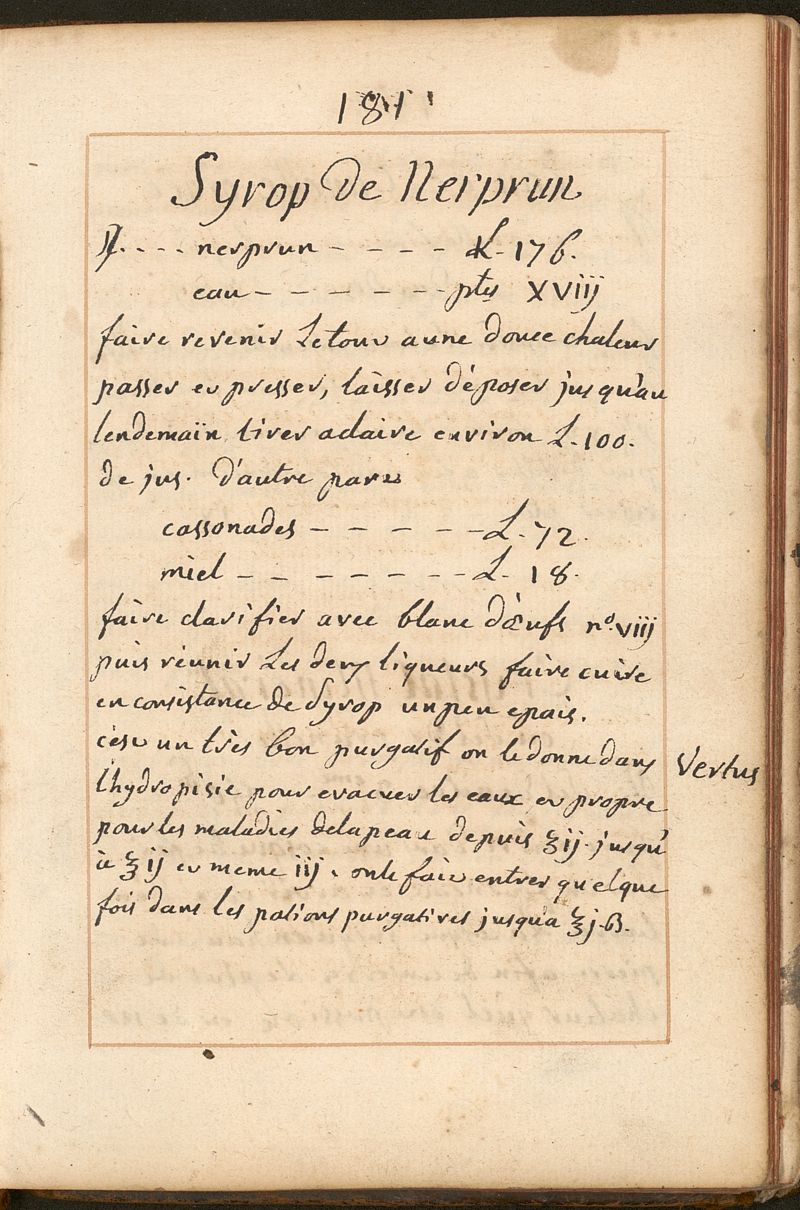 181
Syrop De Nerprun
♃. . . . nerprun - - - - L. 176.
eau - - - - - - ptes XViij
faire revenir Letout aune douce chaleur
passer et presser, laisser déposer jusqu'au
lendemain tirer aclaire environ L. 100.
de jus. D'autre part
cassonades - - - - - L. 72.
miel - - - - - - - L. 18.
faire clarifier avec blanc d'œufs no. viij
puis réunir Les deux liqueurs faire cuire
en consistance de Syrop unpeu epais.
c'est un très bon purgatif on ledonne dans
l'hydropisie pour evacuer les eaux et propre
pour les maladies delapeau depuis ℥ij. jusqu'
à ℥ij et meme iij. onle fait entrer quelque
fois dans les potions purgatives jusqu'a ℥j.ß.
Vertus